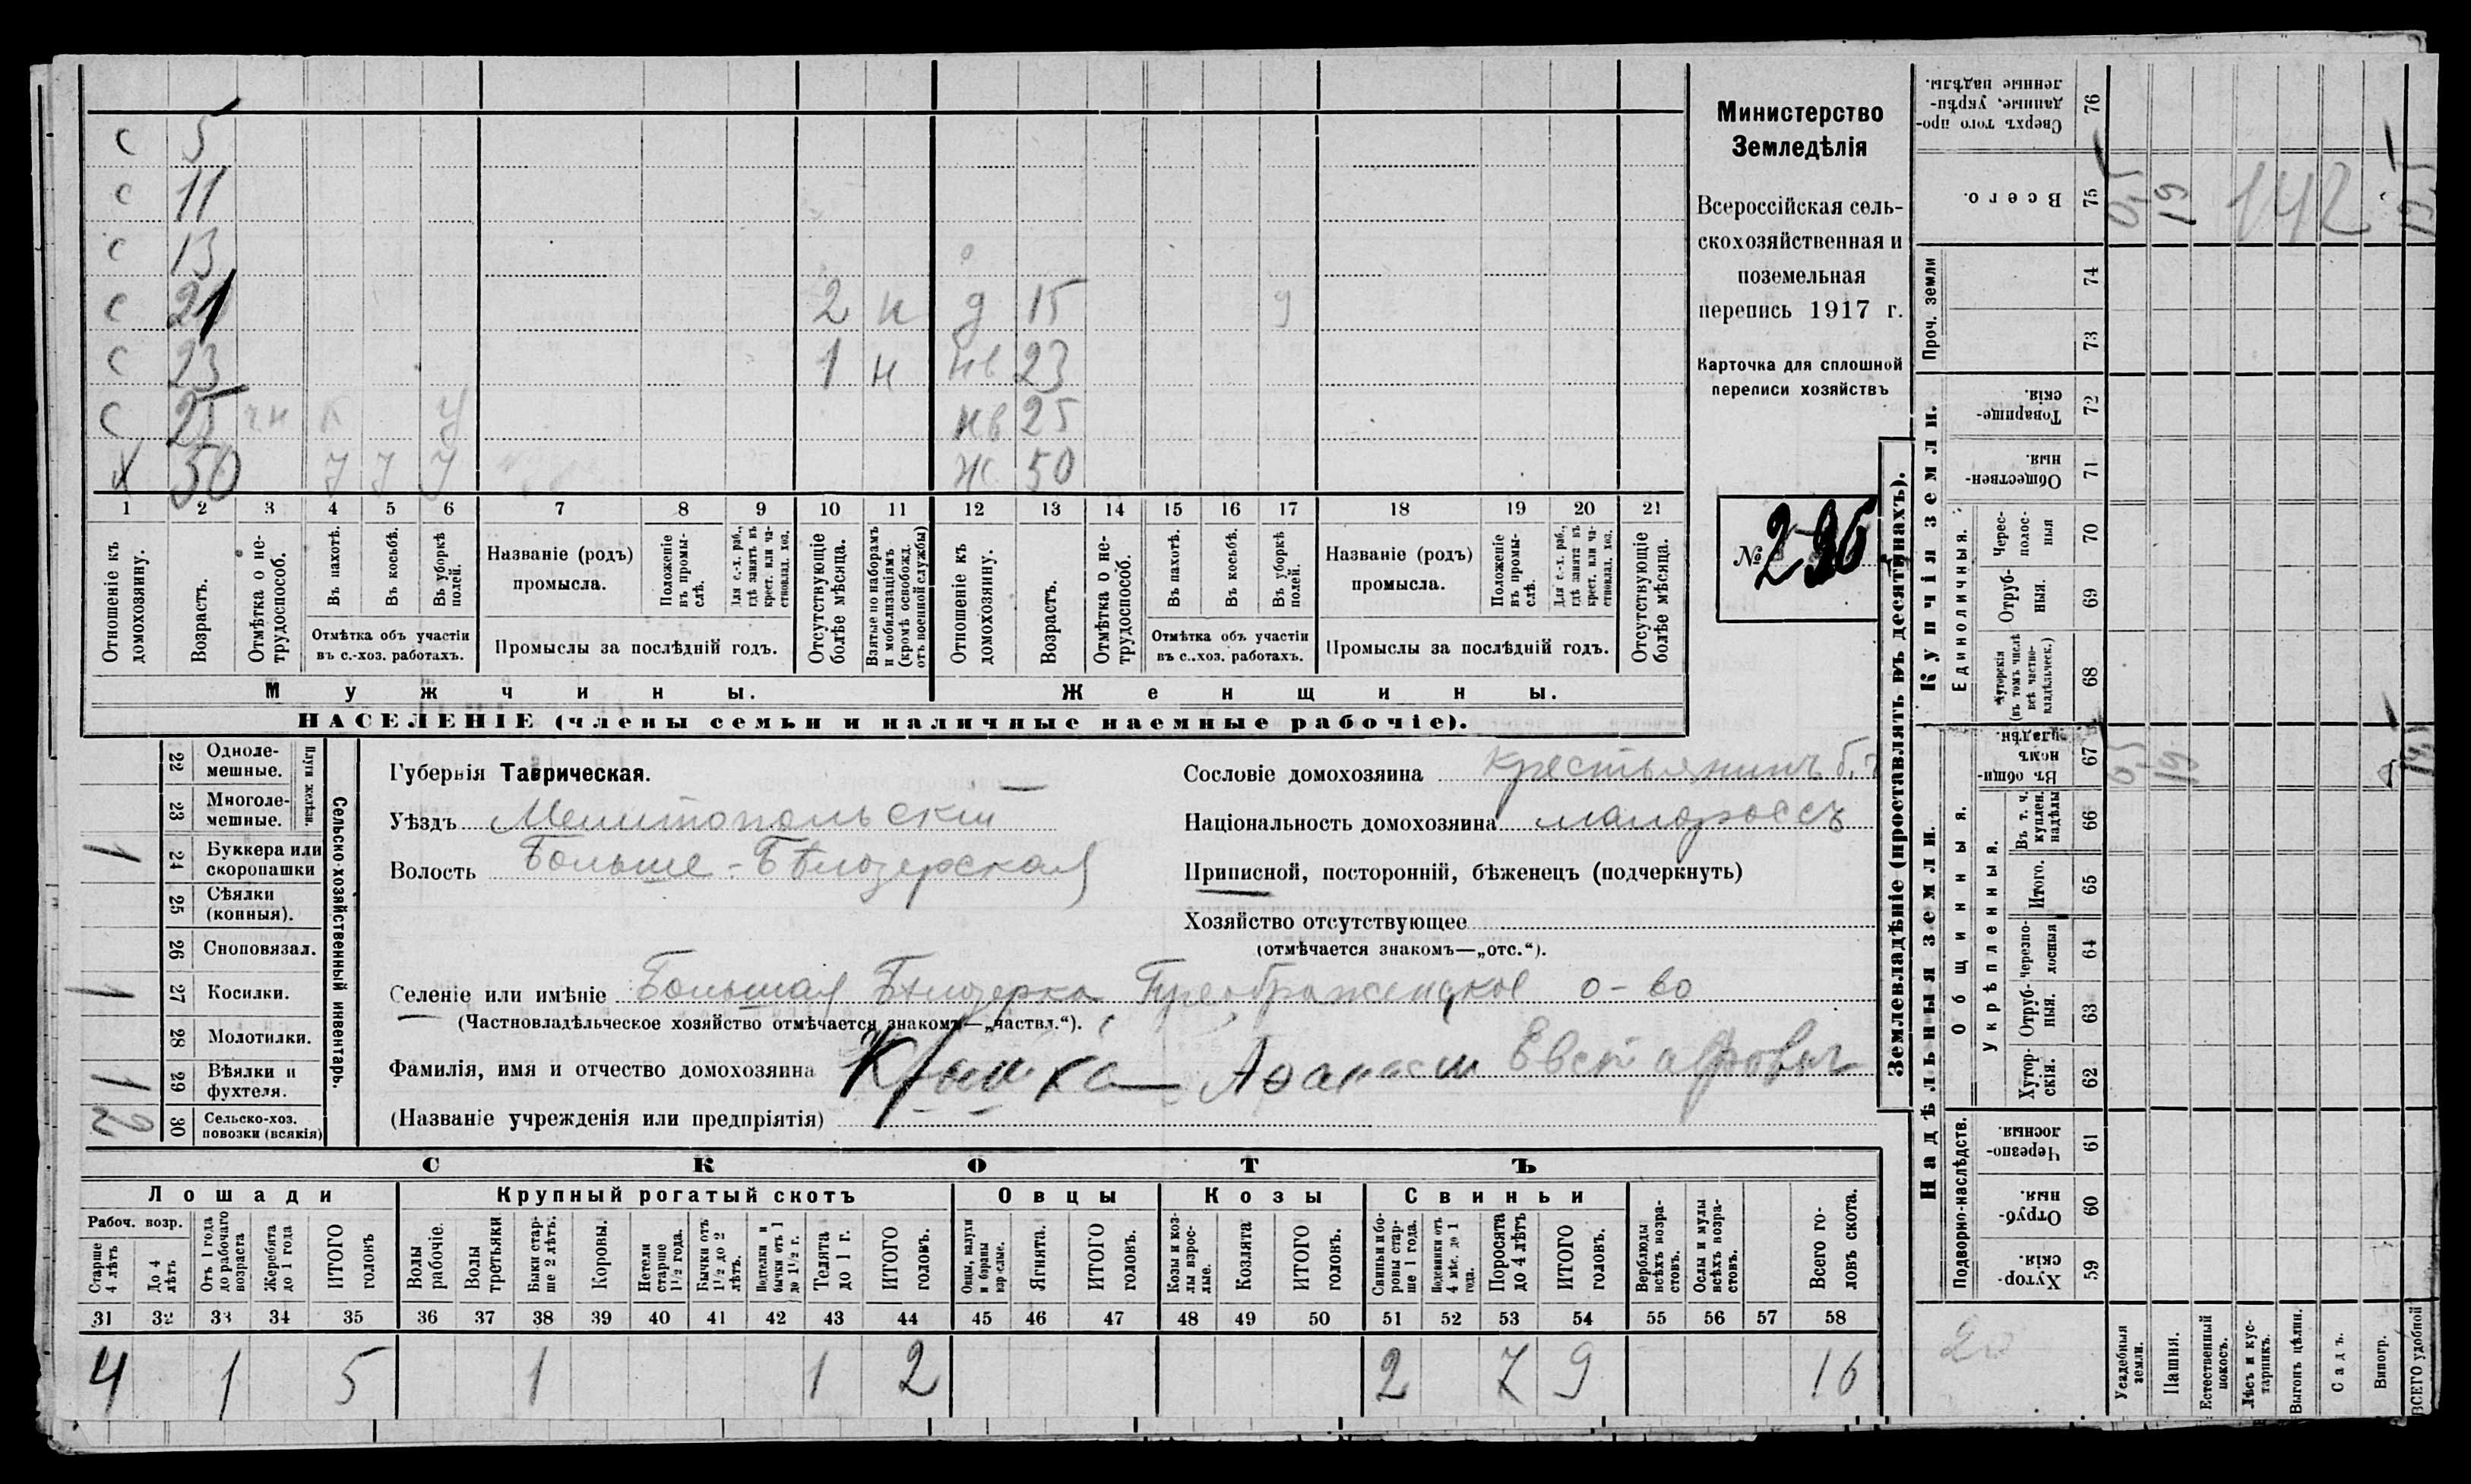 с 5
с 11
с 13
с 21 2 н д 15 9
с 23 1 н нв 23
с 25 чн п у нв 25
х 50 у у у ж 50
1 2 3 4 5 6 7 8 9 10 11 12 13 14 15 16 17 18 19 20 21
Отношеніе къ домохозяину.
Возрастъ.
Отмѣтка о не-
трудоспособ.
Въ пахотѣ.
Въ косьбѣ.
Въ уборкѣ
полей.
Отмѣтка объ участіи
въ с.-хоз. работахъ.
Названіе (родъ)
промысла.
Положеніе
въ промы-
слѣ.
Для с.-х. раб.,
гдѣ занятъ въ
крест. или ча-
стновлад. хоз.
Промыслы за послѣдній годъ.
Отсутствующіе
болѣе мѣсяца.
Взятые по наборамъ
и мобилизаціямъ
(кромѣ освобожд.
отъ военной службы)
Отношеніе къ
домохозяину.
Возрастъ.
Отмѣтка о не-
трудоспособ.
Въ пахотѣ.
Въ косьбѣ.
Въ уборкѣ
полей.
Отмѣтка объ участіи
въ с.-хоз. работахъ.
Названіе (родъ)
промысла.
Положеніе
въ промы-
слѣ.
Для с.-х. раб.,
гдѣ занята въ
крест. или ча-
стновлад. хоз.
Промыслы за послѣдній годъ.
Отсутствующіе
болѣе мѣсяца.
Мужчины. Женщины.
НАСЕЛЕНІЕ (члены семьи и наличные наемные рабочіе).
Министерство
Земледѣлія
Всероссійская сель-
скохозяйственная и
поземельная
перепись 1917 г.
Карточка для сплошной
переписи хозяйствъ
№
22 Одноле-
мешные.
23 Многоле-
мешные.
Плуги желѣзн.
1 24 Буккера или
скоропашки
25 Сѣялки
(конныя).
26 Сноповязал.
1 27 Косилки.
28 Молотилки.
1 29 Вѣялки и
фухтеля.
2 30 Сельско-хоз.
повозки (всякія)
Сельско-хозяйственный инвентарь.
Губернія Таврическая.
Уѣздъ Мелитопольскій
Волость Больше-Бѣлозерская
Сословіе домохозяина крестьянинъ
Національность домохозяина малороссъ
Приписной, посторонній, бѣженецъ (подчеркнуть)
Хозяйство отсутствующее
(отмѣчается знакомъ—„отс.“).
Селеніе или имѣніе Большая Бѣлозерка Преображенское о-во
(Частновладѣльческое хозяйство отмѣчается знакомъ—„частвл.“).
Фамилія, имя и отчество домохозяина Крышка Аѳанасій Евстафович
(Названіе учрежденія или предпріятія)
СКОТЪ
Лошади Крупный рогатый скотъ Овцы Козы Свиньи
Рабоч. возр.
Старше
4 лѣтъ
До 4
лѣтъ
Отъ 1 года
до рабочаго
возраста
Жеребята
до 1 года
ИТОГО
головъ
Волы
рабочіе.
Волы
третьяки
Быки стар-
ше 2 лѣтъ.
Коровы.
Нетели
старше
1½ года.
Бычки отъ
1½ до 2
лѣтъ.
Подтелки и
бычки отъ 1
до 1½ г.
Телята
до 1 г.
ИТОГО
головъ.
Овцы, валухи
и бараны
взрослые.
Ягнята.
ИТОГО
головъ.
Козы и коз-
лы взрос-
лые.
Козлята
ИТОГО
головъ.
Свиньи и бо-
ровы стар-
ше 1 года.
Подсвинки отъ
4 мѣс. до 1
года.
Поросята
до 4 лѣтъ
ИТОГО
головъ.
Верблюды
всѣхъ возра-
стовъ.
Ослы и мулы
всѣхъ возра-
стовъ.
Всего го-
ловъ скота.
31 32 33 34 35 36 37 38 39 40 41 42 43 44 45 46 47 48 49 50 51 52 53 54 55 56 57 58
4 1 5 1 1 2 2 7 9 16
Землевладѣніе (проставлять въ десятинахъ).
Надѣльныя земли. Купчія земли. Проч. земли
Подворно-наслѣдств.
Общинныя.
Укрѣпленныя.
Единоличныя.
59 Хутор-
скія.
60 Отруб-
ныя.
61 Черезпо-
лосныя.
62 Хутор-
скія.
63 Отруб-
ныя.
64 Черезпо-
лосныя
65 Итого.
66 Въ т. ч.
куплен.
надѣлы
67 Въ общин-
номъ
владѣн.
68 Хуторскія
(въ томъ числѣ
всѣ частно-
владѣльческ.)
69 Отруб-
ныя.
70 Черес-
полос-
ныя
71 Обществен-
ныя.
72 Товарище-
скія.
73
74
75 Всего.
76 Сверхъ того про-
данные, укрѣп-
ленные надѣлы.
Усадебныя
земли.
Пашня.
Естественный
покосъ.
Лѣсъ и кус-
тарникъ.
Выгонъ цѣлин.
Садъ.
Виногр.
ВСЕГО удобной
0,5 19
0,5 19 142
20